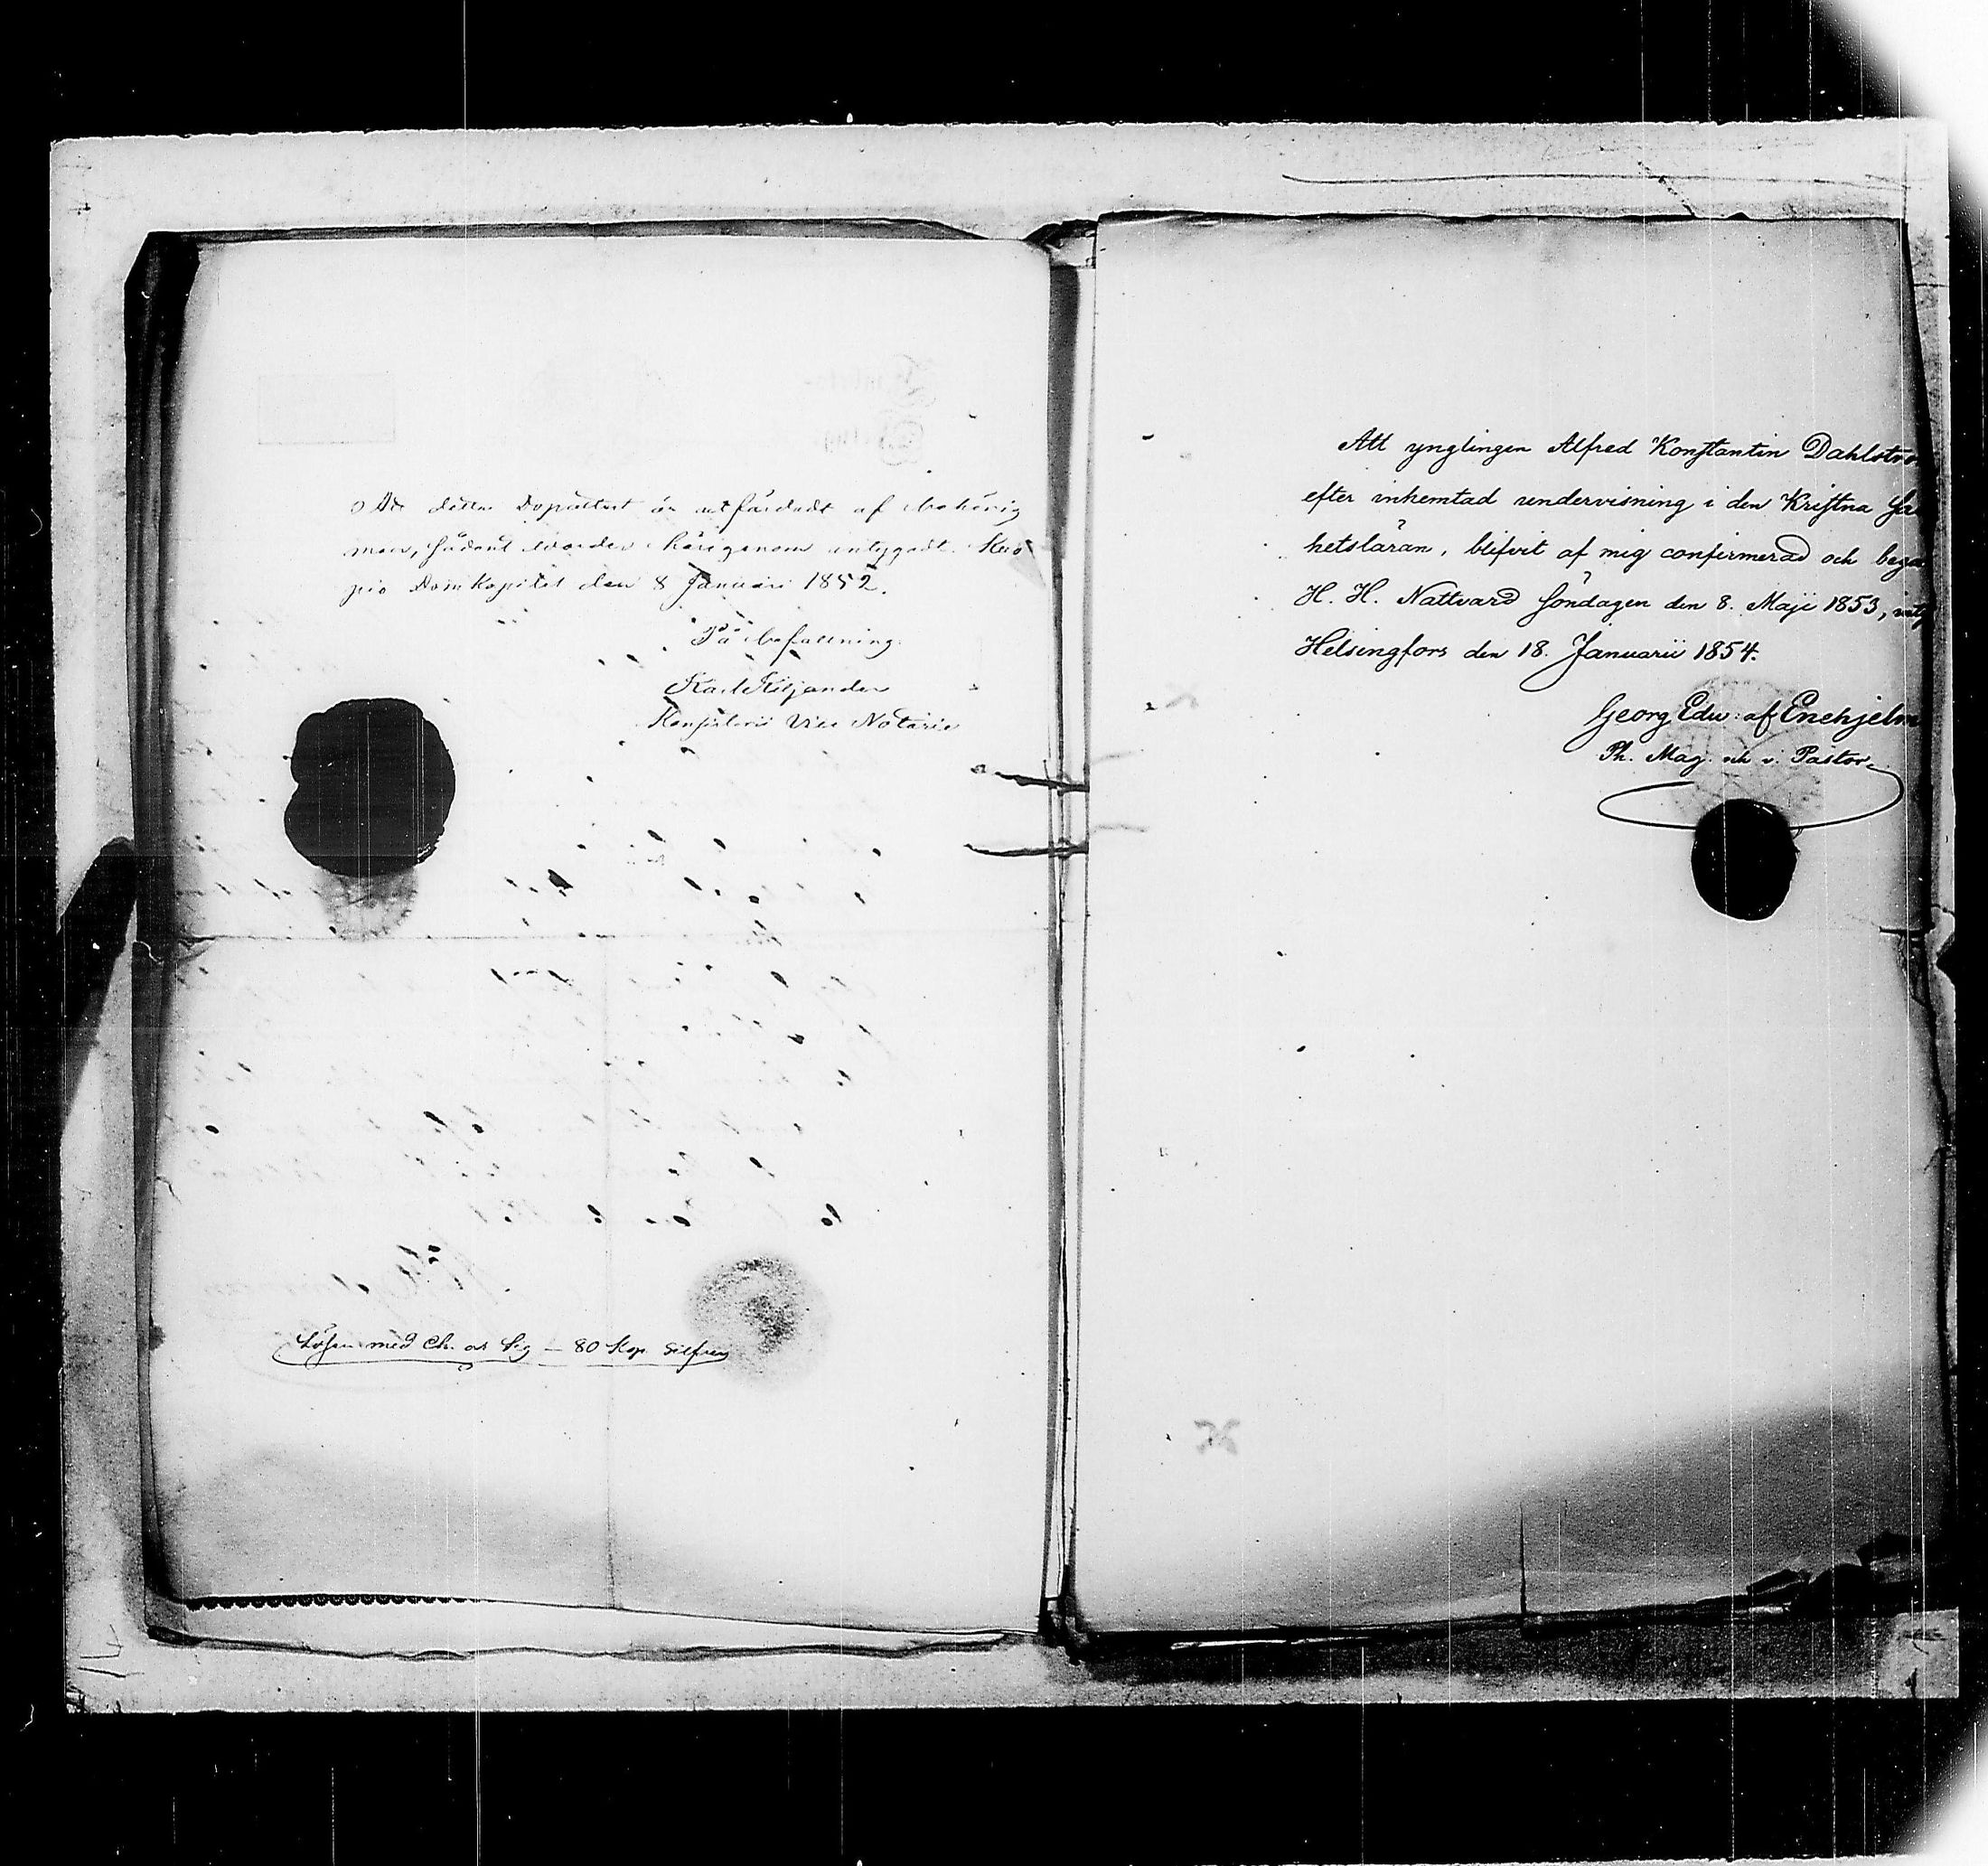 Att detta Dopattest är utfärdadt af behörig
man, sådant warder härigenom intygadt. Kuo
pio Domkapitel den 8 Januari 1852.
På befallning
Karl Kiljander
Konsistorii Vice Notarie
Lösen med Ch. och Sig — 80 Kop. Silfver
Att ynglingen Alfred Konstantin Dahlströ
efter inhemtad undervisning i den Kristna Sa
hetsläran, blifvit af mig confirmerad och begå
H. H. Nattvard Söndagen den 8. Maji 1853, inty
Helsingfors den 18. Januarii 1854.
Georg Edw: af Enehjelm
Ph. Mag. och v. Pastor